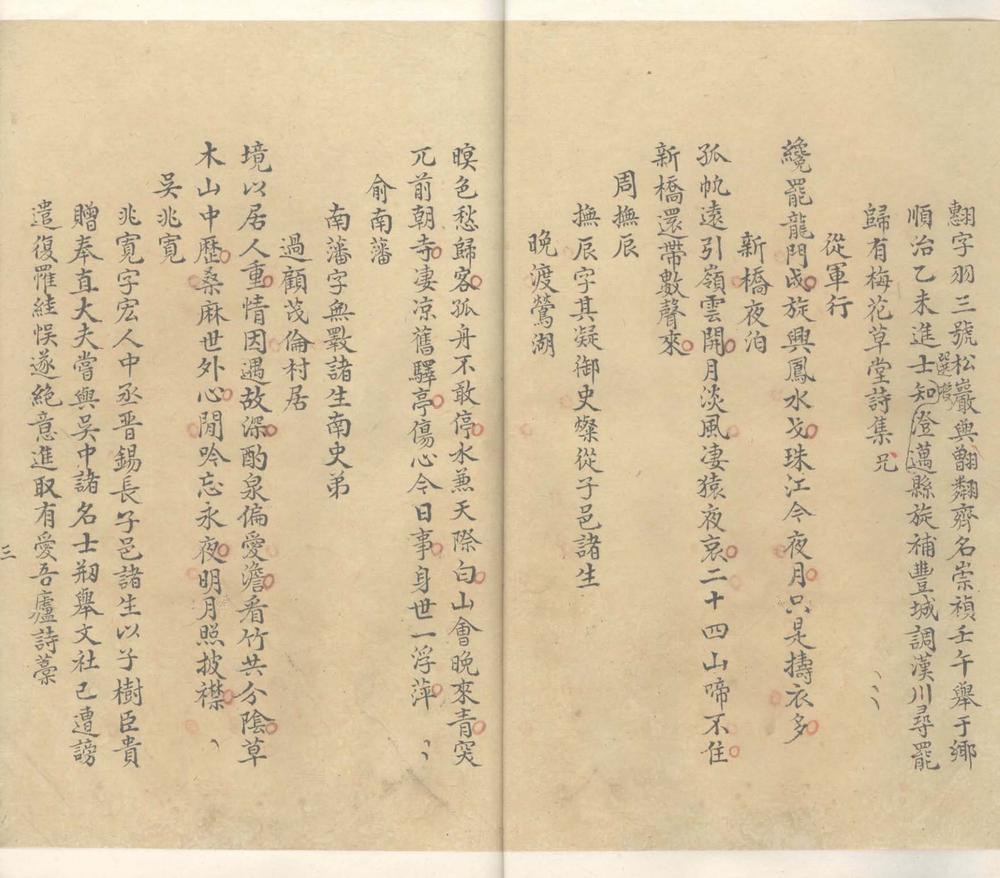 翻字羽三號松巖與翻鄰齊名崇禎壬午舉于鄉
順治乙未進士知澄邁縣旋補豐城調漢川尋罷
選授
歸有梅花草堂詩集
從軍行
纔罷龍門戍旋興鳳水戈珠江今夜月只是擣衣多
新橋夜泊
孤帆遠引嶺雲開月淡風凄猿夜哀二十四山啼不住
新橋還帶數聲來
周撫辰
撫辰字其凝御史燦從子邑諸生
晚渡鶯湖
暝色愁歸客孤舟不敢停水兼天際白山會晚來青突
兀前朝寺凄凉舊驛亭傷心今日事身世一浮萍
俞南藩
南藩字無斁諸生南史弟
過顧茂倫村居
境以居人重情因遇故深酌泉偏愛澹看竹共分陰草
木山中歷桑麻世外心閒吟忘永夜明月照披襟
吳兆寬
兆寬字宏人中丞晋錫長子邑諸生以子樹臣貴
贈奉直大夫嘗與吳中諸名士刱舉文社已遭謗
遣復罹絓悮遂絕意進取有愛吾廬詩藁
三